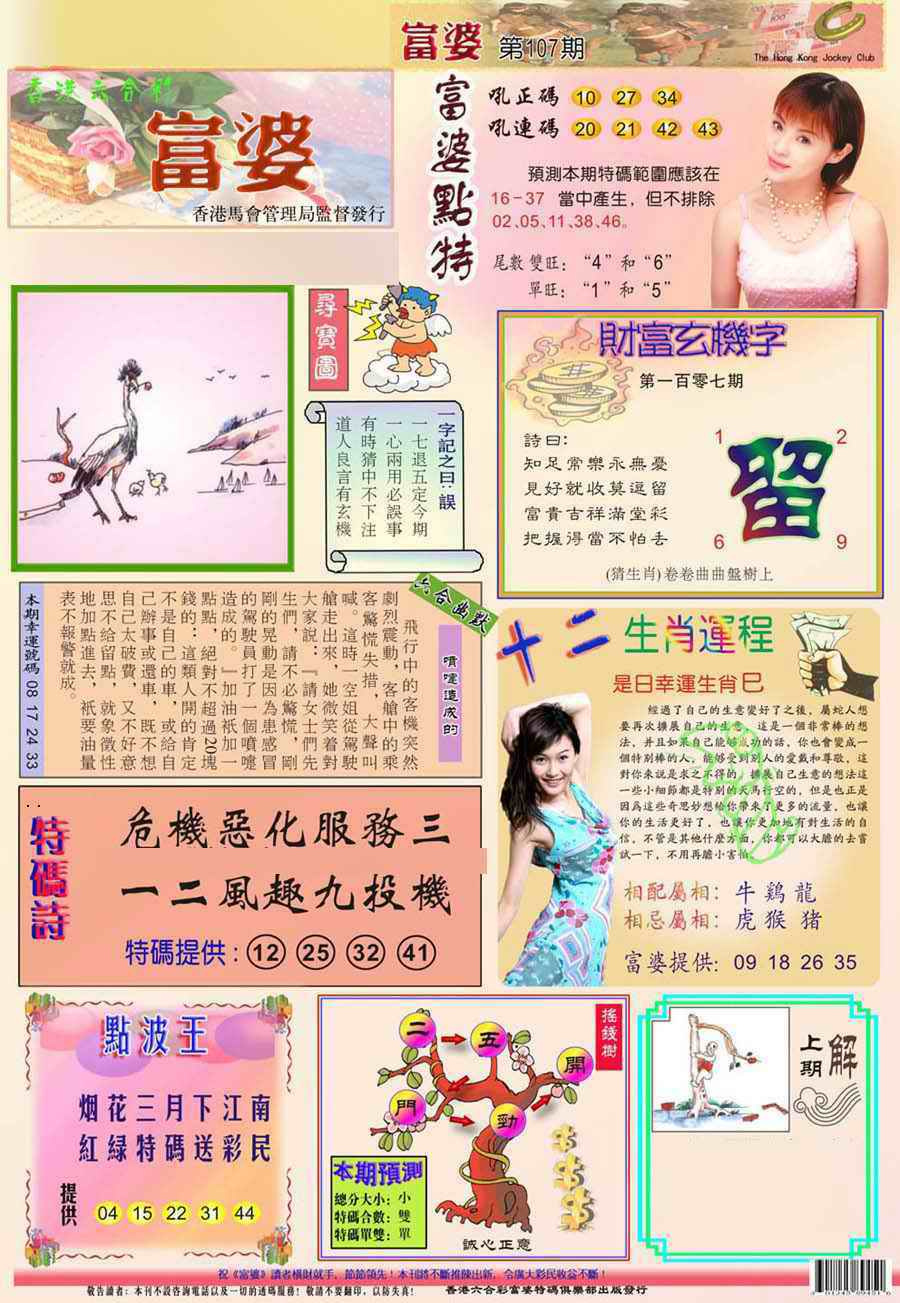 富婆 第107期
The Hong Kong Jockey Club
香港六合彩
富婆
香港馬會管理局監督發行
富婆點特
吼正碼 10 27 34
吼連碼 20 21 42 43
預測本期特碼範圍應該在
16-37 當中產生，但不排除
02、05、11、38、46。
尾數雙旺：“4”和“6”
單旺：“1”和“5”
尋寶圖
一字記之曰：誤
一七退五定今期
一心兩用必誤事
有時猜中不下注
道人良言有玄機
財富玄機字
第一百零七期
詩曰：
知足常樂永無憂
見好就收莫逗留
富貴吉祥滿堂彩
把握得當不怕丟
1 2
留
6 9
(猜生肖)卷卷曲曲盤樹上
六合幽默
噴嚏造成的
飛行中的客機突然
劇烈震動，客艙中的乘
客驚慌失措，大聲叫
喊。這時一空姐從駕駛
艙走出來，她微笑着對
大家說：『請女士們先
生們，請不必驚慌，剛
剛的晃動是因為患感冒
的駕駛員打了一個噴嚏
造成的。』加油祇加一
點點，絕對不超過20塊
錢的：這類人開的肯定
不是自己的車，或給自
己辦事或還車，既不想
自己太破費，又不好意
思不給留點，就象徵性
地加點進去，祇要油量
表不報警就成。
本期幸運號碼 08 17 24 33
十二生肖運程
是日幸運生肖巳
經過了自己的生意變好了之後，屬蛇人想
要再次擴展自己的生意，這是一個非常棒的想
法，并且如果自己能够成功的話，你也會變成一
個特別棒的人，能够受到別人的愛戴和尊敬，這
對你来說是求之不得的，擴展自己生意的想法這
一些小細節都是特別的天馬行空的，但是也正是
因爲這些奇思妙想給你帶來了更多的流量，也讓
你的生活更好了，也讓你更加地有對生活的自
信，不管是其他什麼方面，你都可以大膽的去嘗
試一下，不用再膽小害怕。
相配屬相：牛 鷄 龍
相忌屬相：虎 猴 猪
富婆提供：09 18 26 35
特碼詩
危機惡化服務三
一二風趣九投機
特碼提供：12 25 32 41
點波王
烟花三月下江南
紅緑特碼送彩民
提供 04 15 22 31 44
搖錢樹
二 五
開
門 勁
本期預測
總分大小：小
特碼合數：雙
特碼單雙：單
誠心正意
上期解
祝《富婆》讀者橫財就手，節節領先！本刊將不斷推陳出新，令廣大彩民收益不斷！
敬告讀者：本刊不設咨詢電話以及一切的透碼服務！敬請不要翻印，以防失真！ 香港六合彩富婆特碼俱樂部出版發行